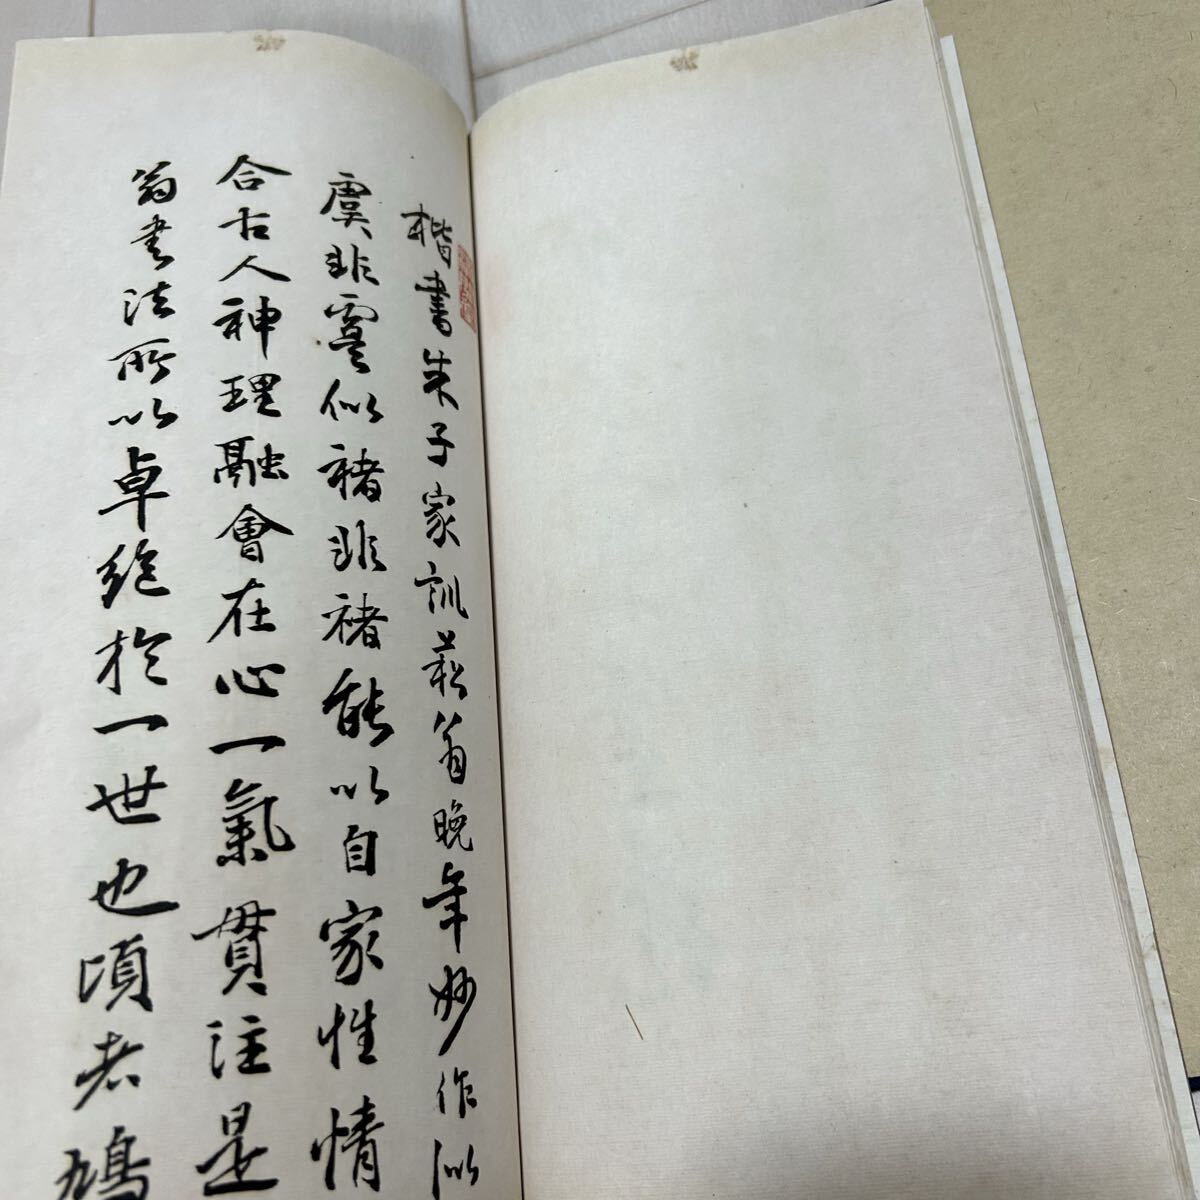 楷書朱子家訓菘翁晩年妙作似
虞非虞似褚非褚能以自家性情
合古人神理融會在心一氣貫注是
翁書法所以卓絶於一世也頃者鳩